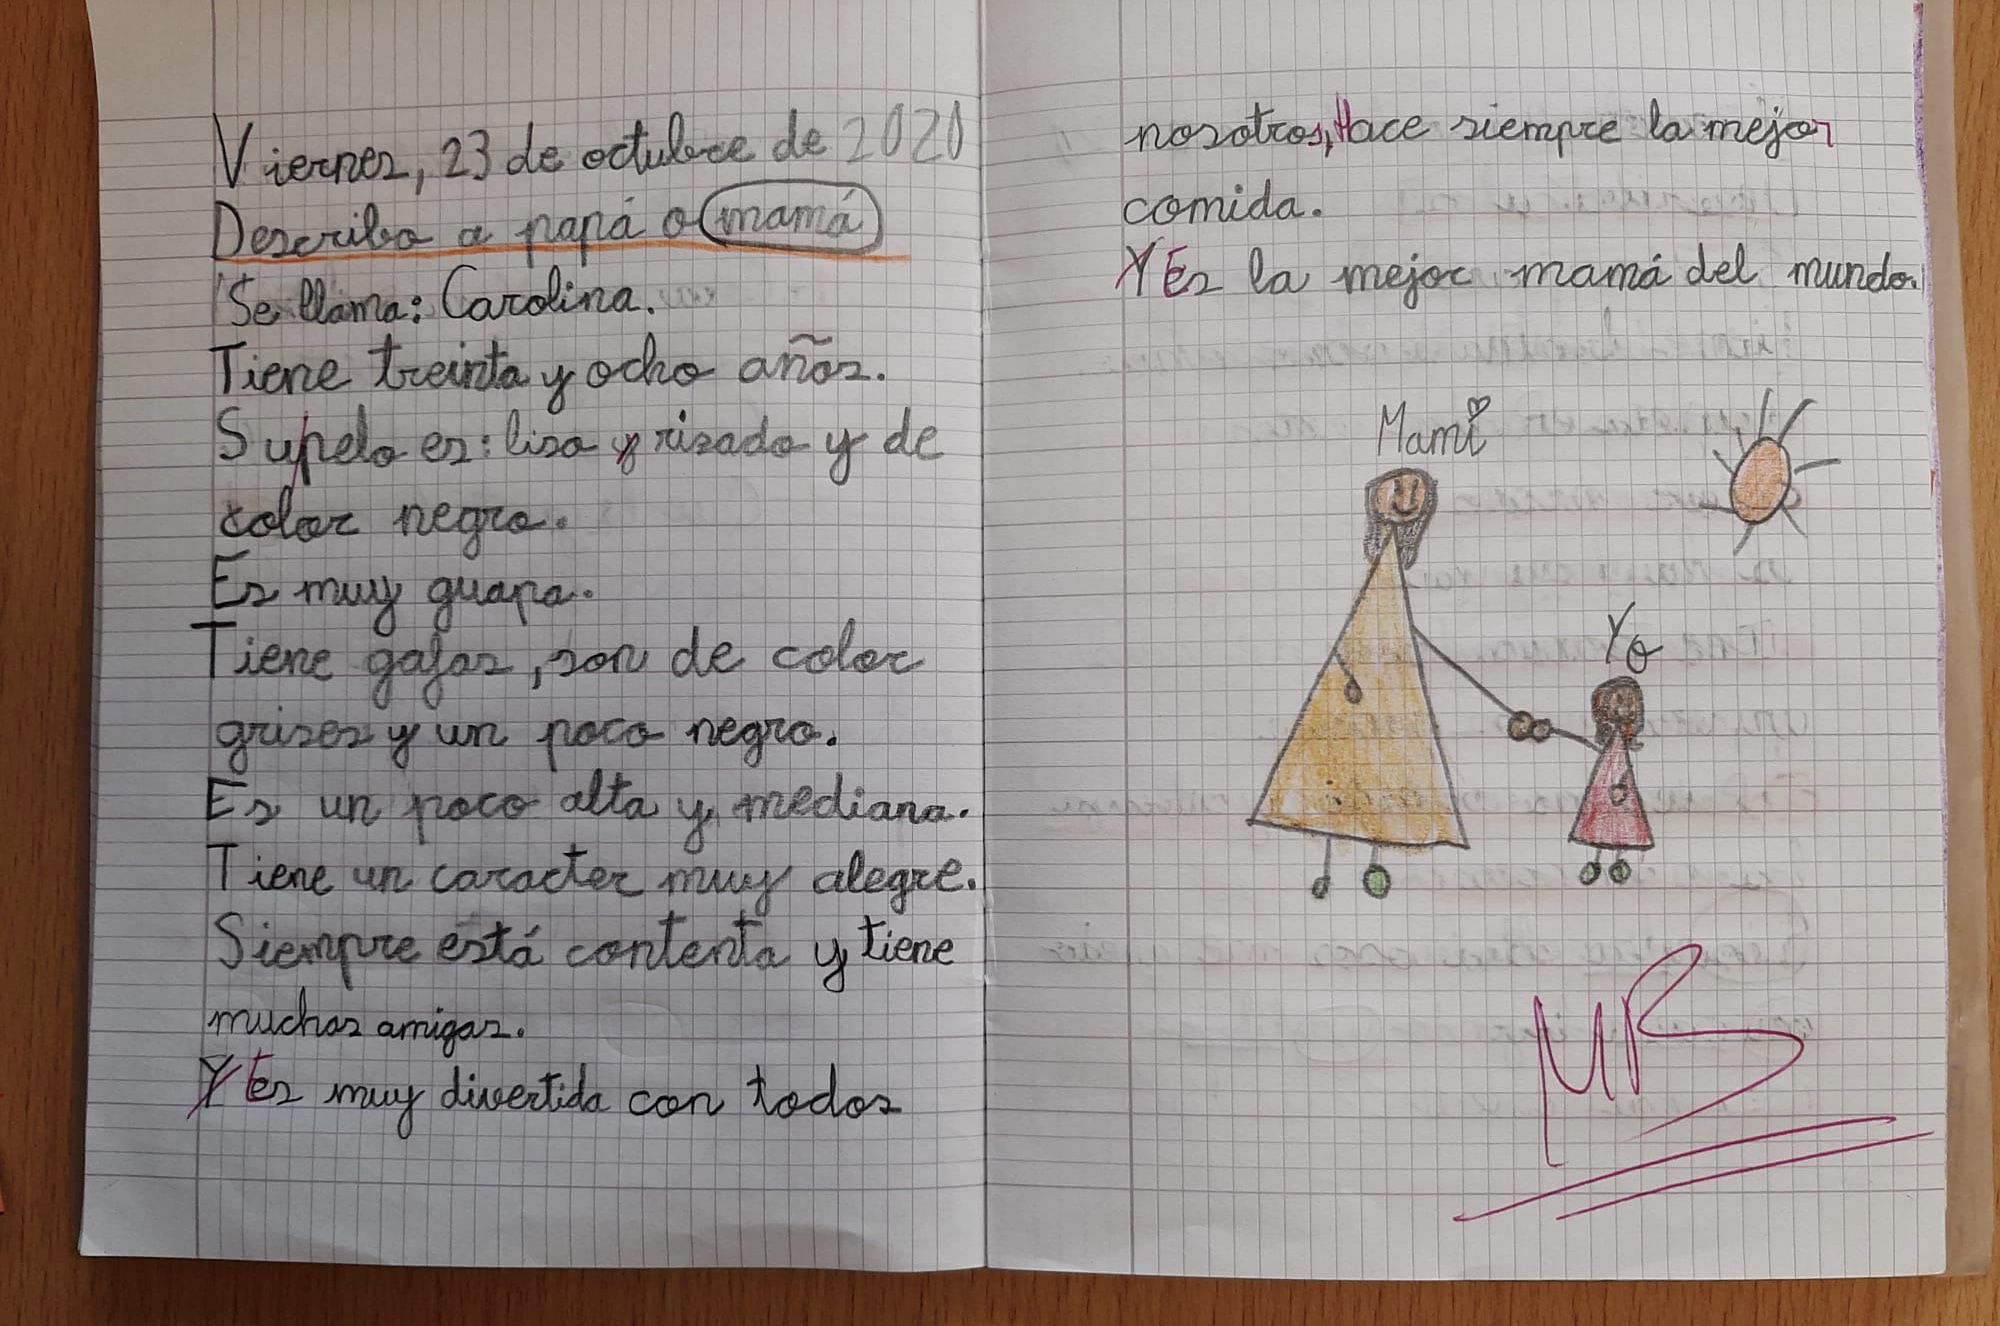 Viernes, 23 de octubre de 2020
Describo a papá o mamá
Se llama: Carolina.
Tiene treinta y ocho años.
Su pelo es: liso y rizado y de
color negro.
Es muy guapa.
Tiene gafas, son de color
grises y un poco negro.
Es un poco alta y mediana.
Tiene un caracter muy alegre.
Siempre está contenta y tiene
muchas amigas.
Y Es muy divertida con todos
nosotros, Hace siempre la mejor
comida.
Y Es la mejor mamá del mundo.
Mami
Yo
MB